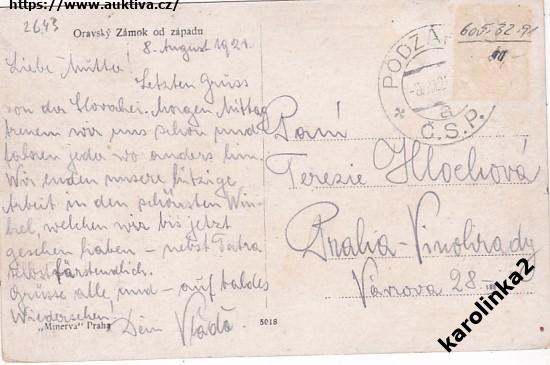 https://www.auktiva.cz/
2643
Oravský Zámok od západu
8. August 1921.
Liebe Mutter!
Letzten Gruss
von der Slovakei. Morgen Mittag
trenen wir uns schon und
jeder wo anders hin.
Wir enden unsere hitzige
Arbeit in den schönsten Win-
kel, welchen wir bis jetzt
gesehen haben – nebst Tatra
selbstfärstendlich.
Grüsse alle und – auf baldes
Wiedersehen.
Dein Vláďa.
"Minerva" Praha
5018
PODZÁ
a
Č.S.P.
605-32-91
Paní
Terezie Hlochová
Praha-Vinohrady
Vávrova 28-
karolinka2